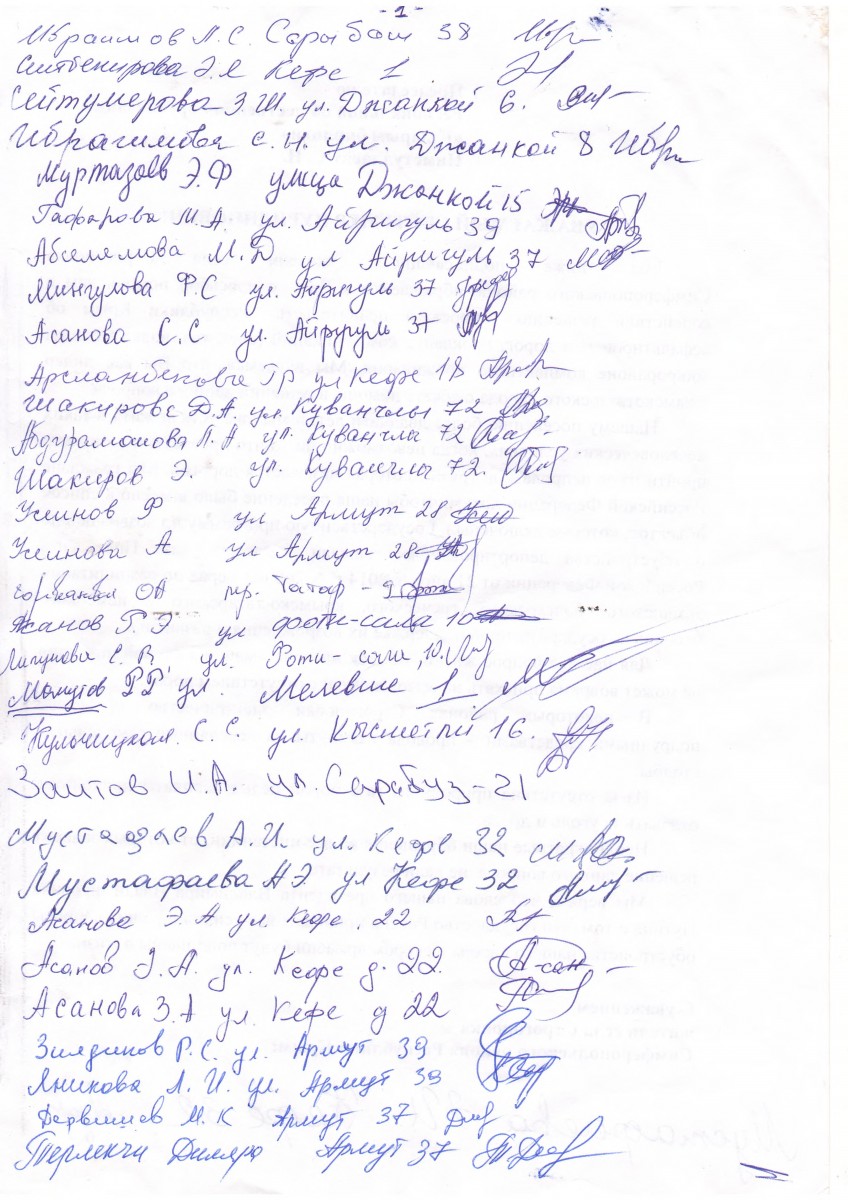 - 1 -
Ибраимов Л.С. Сарыбаш 38
Сеитбекирова Э.Я Кефе 1
Сейтумерова З.Ш. ул. Джанкой 6.
Ибрагимова С.Н. ул. Джанкой 8
Муртазаев Э.Ф улица Джанкой 15
Гафарова М.А. ул. Айригуль 39
Абселямова М.Д ул Айригуль 37
Мингулова Ф.С ул. Айригуль 37
Асанова С.С ул. Айругуль 37
Арсланбекова Г.Р ул Кефе 18
Шакирова Д.А. ул. Куванчлы 72
Абдурамановa Л.А. ул. Куванчлы 72
Шакиров Э. ул. Куванчлы 72.
Усеинов Ф ул Армут 28
Усеинова А ул Армут 28
ОА пр. Татар - 9
Асанов Г.Э ул фоти-сала 10
С. В. ул. Фоти-сала, 10.
Мамутов Р.Р. ул. Мелевше 1
Кульчицкая С.С. ул. Кысметли 16.
Заитов И.А. ул. Сарабуз-21
Мустафаев А.И. ул. Кефе 32
Мустафаева А.Э. ул Кефе 32
Асанова Э.А ул. Кефе. 22
Асанов Э.А. ул. Кефе д. 22.
Асанова З.А ул. Кефе д 22
Зиядинов Р.С. ул. Армут 39
Яникова Л.И. ул. Армут 39
Дервишев М.К Армут 37
Терлекчи Диляра Армут 37